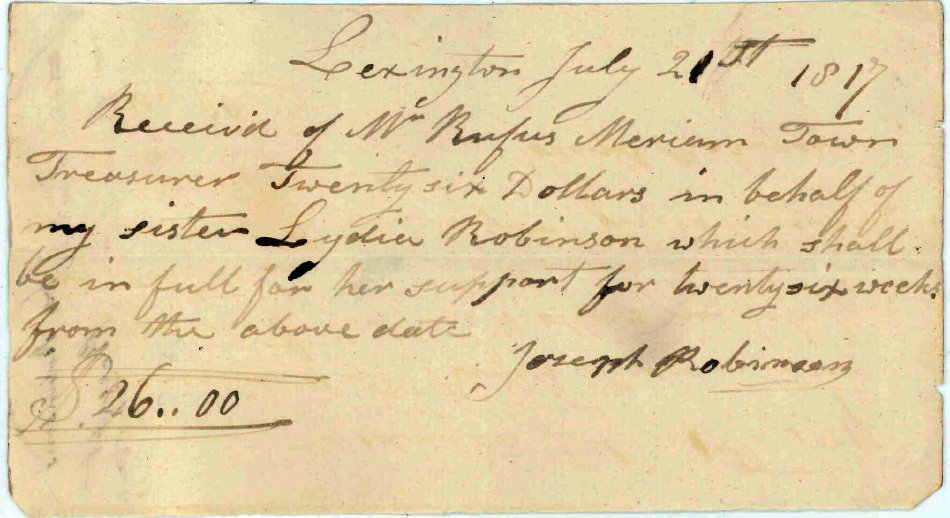 Lexington July 21st 1817
Receiv'd of Mr Rufus Meriam Town
Treasurer Twenty six Dollars in behalf of
my sister Lydia Robinson which shall
be in full for her support for twenty six weeks
from the above date
Joseph Robinson
$ 26..00